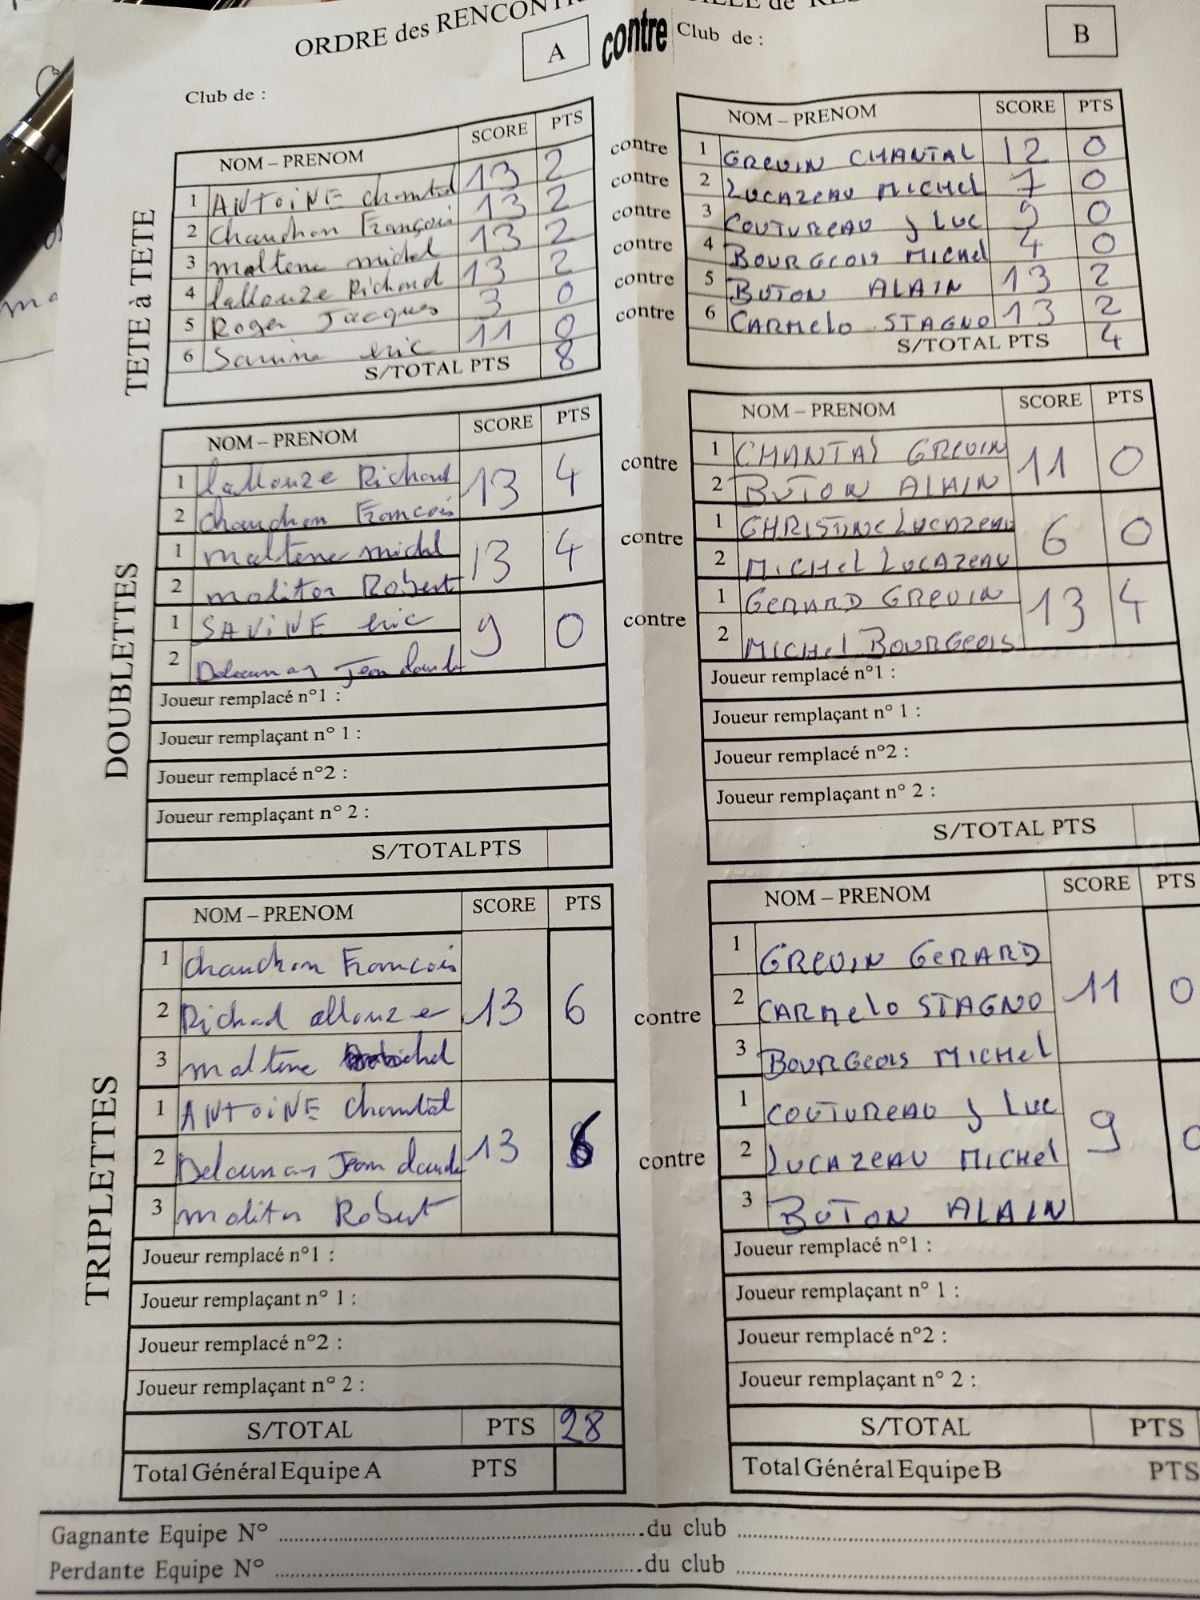 ORDRE des RENCONTR
A
contre
Club de :
B
Club de :
TETE à TETE
NOM – PRENOM SCORE PTS
1 ANTOINE Chantal 13 2
2 Chauchon François 13 2
3 maltene michel 13 2
4 lallouze Richard 13 2
5 Roger Jacques 3 0
6 Savine eric 11 0
S/TOTAL PTS 8
contre
contre
contre
contre
contre
contre
NOM – PRENOM SCORE PTS
1 GREVIN CHANTAL 12 0
2 LUCAZEAU MICHEL 7 0
3 COUTUREAU J LUC 9 0
4 BOURGEOIS MICHEL 4 0
5 BUTON ALAIN 13 2
6 CARMELO STAGNO 13 2
S/TOTAL PTS 4
DOUBLETTES
NOM – PRENOM SCORE PTS
1 lallouze Richard 13 4
2 Chauchon François
1 maltene michel 13 4
2 moliton Robert
1 SAVINE eric 9 0
2 Delaunay Jean claude
Joueur remplacé n°1 :
Joueur remplaçant n° 1 :
Joueur remplacé n°2 :
Joueur remplaçant n° 2 :
S/TOTAL PTS
contre
contre
contre
NOM – PRENOM SCORE PTS
1 CHANTAL GREVIN 11 0
2 BUTON ALAIN
1 CHRISTINE LUCAZEAU 6 0
2 MICHEL LUCAZEAU
1 GERARD GREVIN 13 4
2 MICHEL BOURGEOIS
Joueur remplacé n°1 :
Joueur remplaçant n° 1 :
Joueur remplacé n°2 :
Joueur remplaçant n° 2 :
S/TOTAL PTS
TRIPLETTES
NOM – PRENOM SCORE PTS
1 Chauchon François
2 Richard allouze 13 6
3 maltene michel
1 ANTOINE Chantal
2 Delaunay Jean claude 13 6
3 moliton Robert
Joueur remplacé n°1 :
Joueur remplaçant n° 1 :
Joueur remplacé n°2 :
Joueur remplaçant n° 2 :
S/TOTAL PTS 28
Total Général Equipe A PTS
contre
contre
NOM – PRENOM SCORE PTS
1 GREVIN GERARD
2 CARMELO STAGNO 11 0
3 BOURGEOIS MICHEL
1 COUTUREAU J LUC
2 LUCAZEAU MICHEL 9 0
3 BUTON ALAIN
Joueur remplacé n°1 :
Joueur remplaçant n° 1 :
Joueur remplacé n°2 :
Joueur remplaçant n° 2 :
S/TOTAL PTS
Total Général Equipe B PTS
Gagnante Equipe N° ........ du club ........
Perdante Equipe N° ........ du club ........